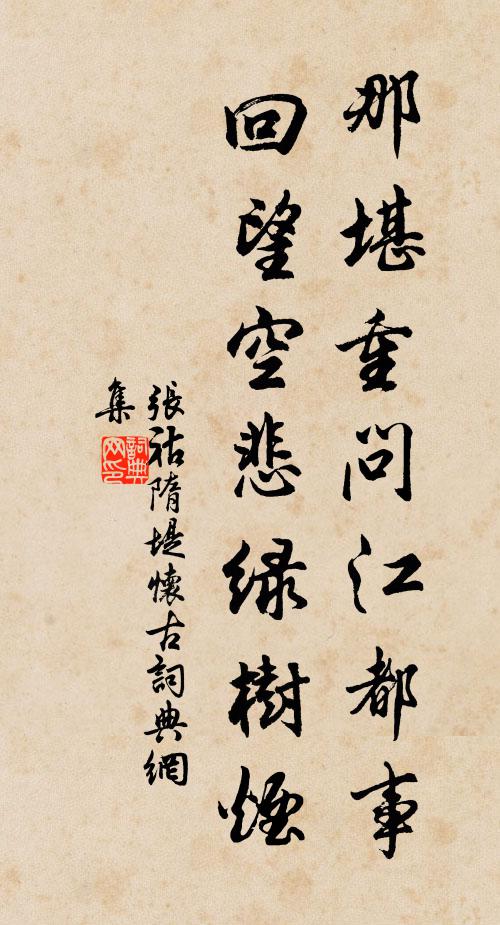 那堪重問江都事
回望空悲綠樹煙
張祜隋堤懷古詞典網
集
詞典網印